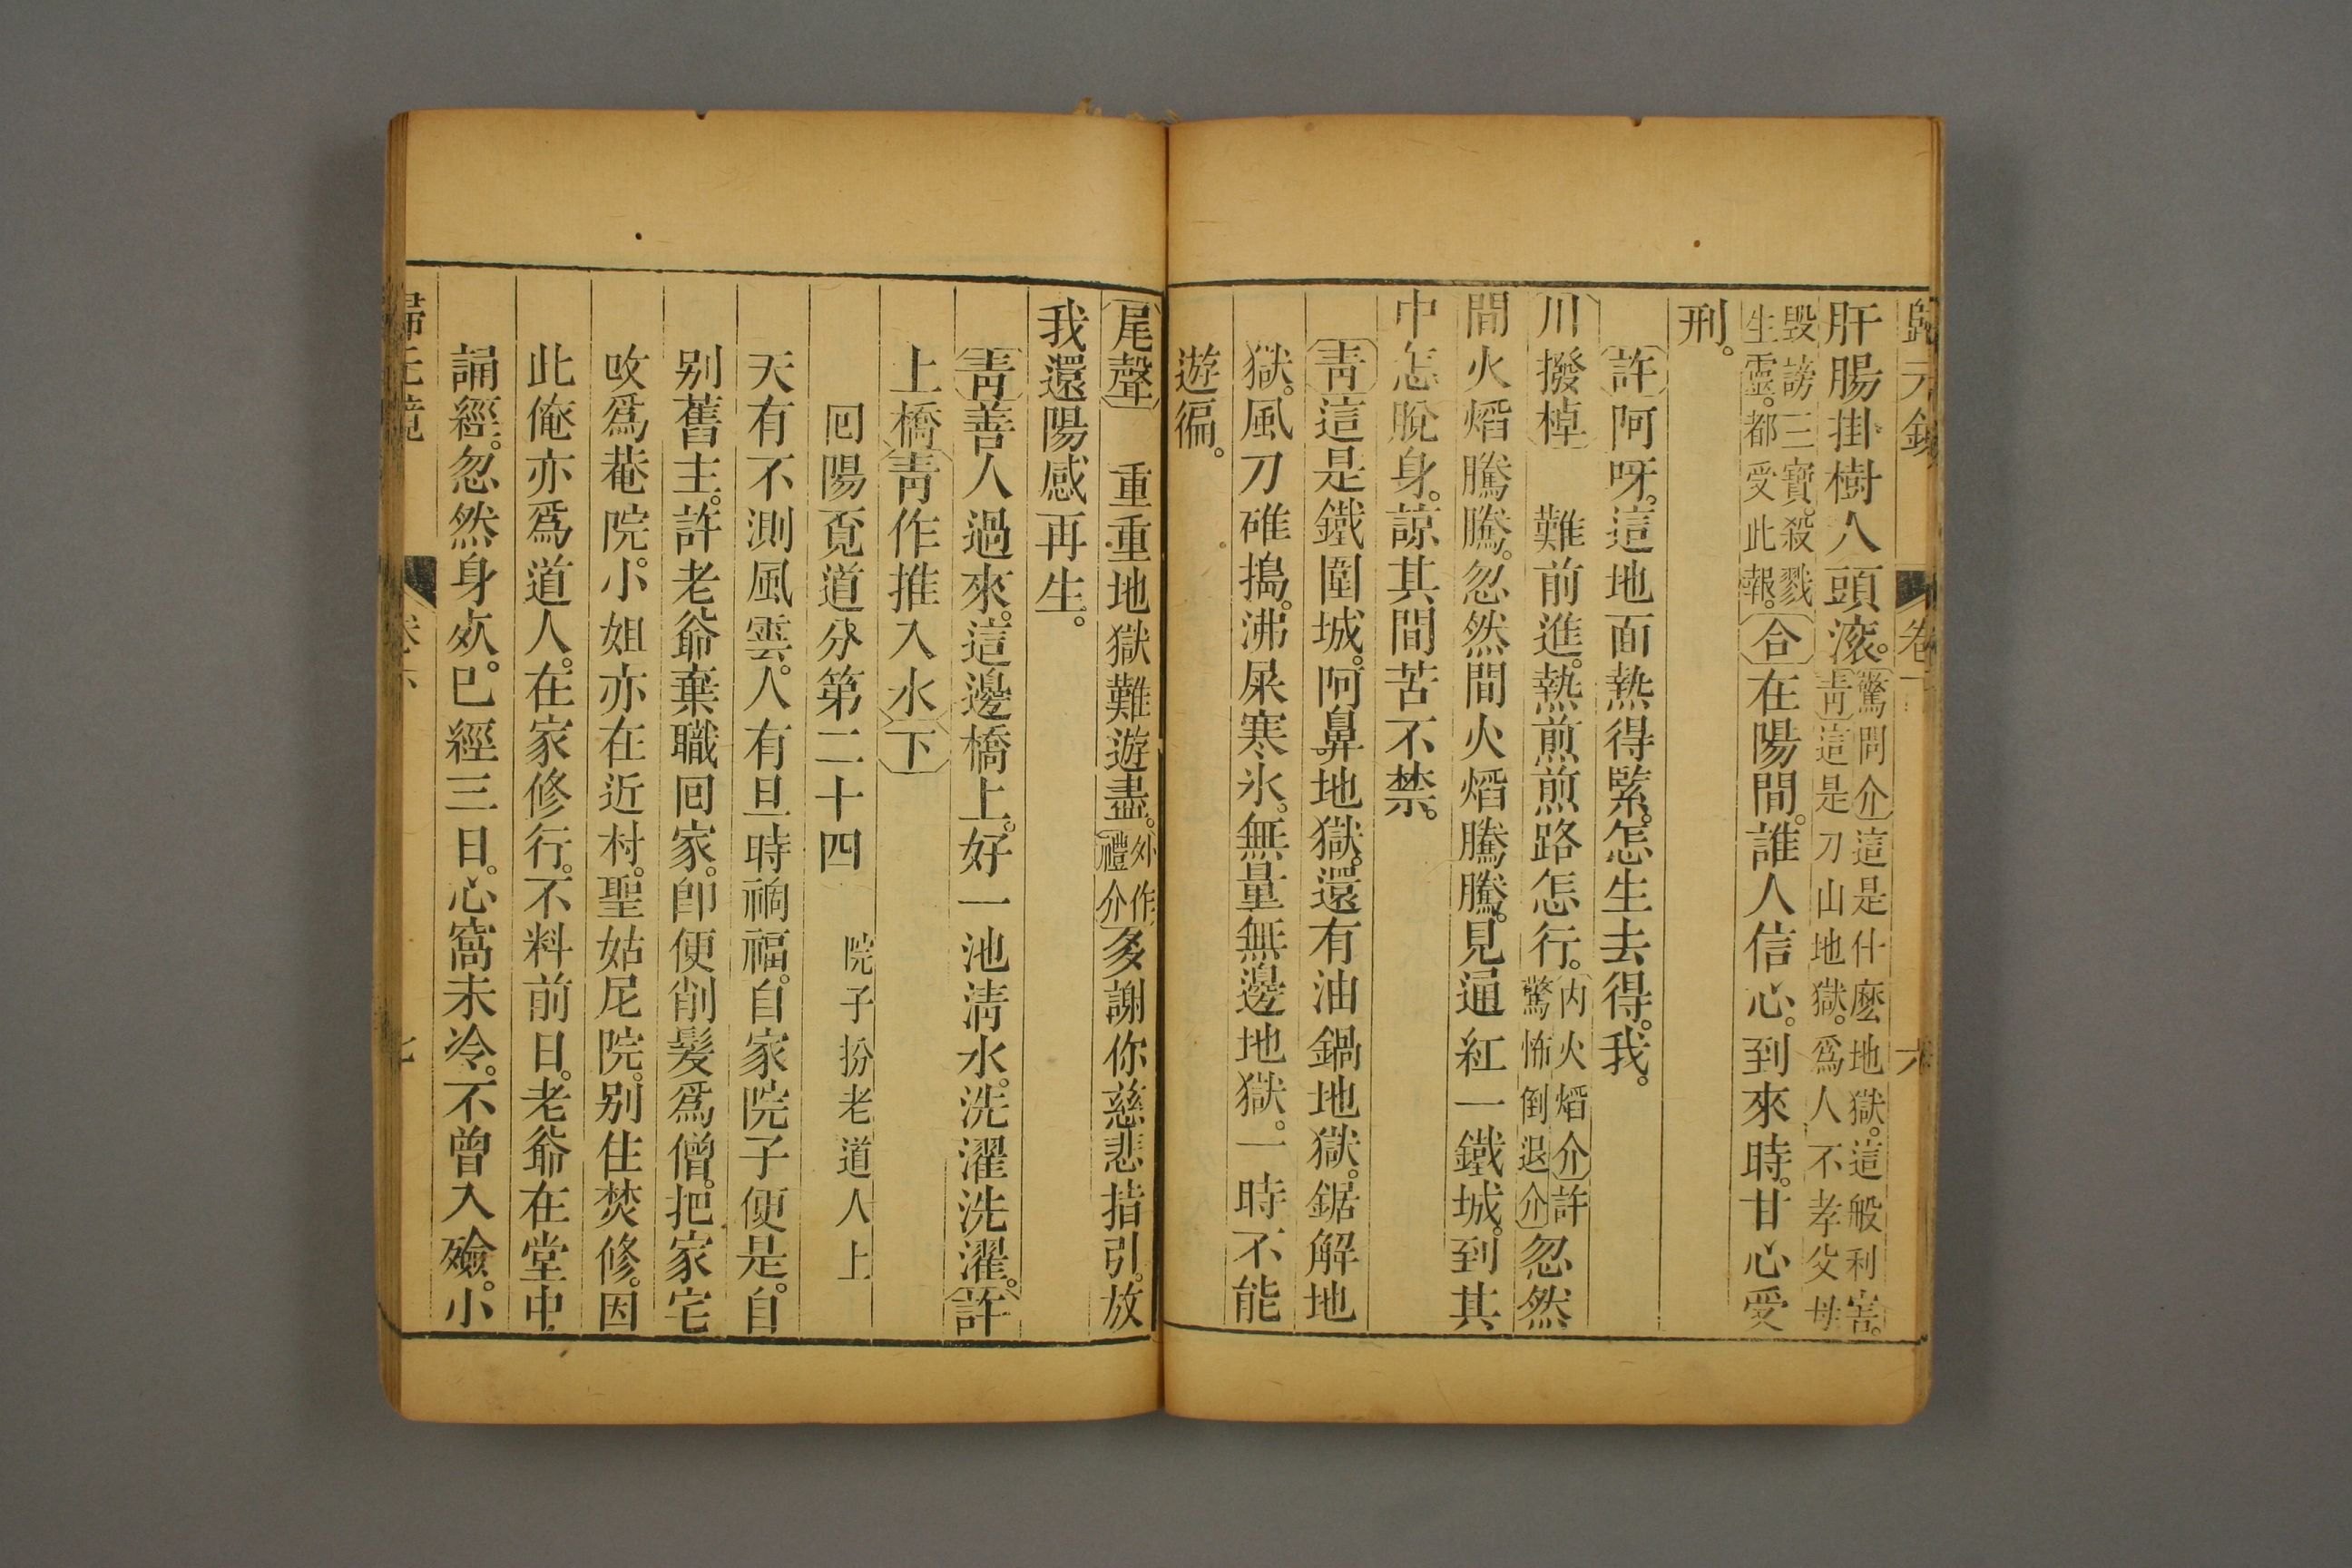 歸元鏡 卷下 六
肝腸掛樹人頭滚。驚問介這是什麽地獄。這般利害。
青這是刀山地獄。爲人不孝父母
毀謗三寶。殺戮
生靈。都受此報。合在陽間。誰人信心。到來時。甘心受
刑。
許阿呀。這地面熱得緊。怎生去得。我。
川撥棹 難前進。熱煎煎路怎行。内火熖介許
驚怖倒退介忽然
間火熖騰騰。忽然間火熖騰騰。見通紅一鐵城。到其
中怎脫身。諒其間苦不禁。
青這是鐵圍城。阿鼻地獄。還有油鍋地獄。鋸解地
獄。風刀碓搗。沸屎寒氷。無量無邊地獄。一時不能
遊徧。
尾聲 重重地獄難遊盡。外作
禮介多謝你慈悲指引。放
我還陽感再生。
青善人過來。這邊橋上。好一池清水。洗濯洗濯。許
上橋青作推入水下
囘陽覔道分第二十四 院子扮老道人上
天有不測風雲。人有旦時禍福。自家院子便是。自
别舊主。許老爺棄職囘家。卽便削髮爲僧。把家宅
攺爲菴院。小姐亦在近村。聖姑尼院。别住焚修。因
此俺亦爲道人。在家修行。不料前日。老爺在堂中
誦經。忽然身故。已經三日。心窩未冷。不曾入殮。小
歸元鏡 卷下 七